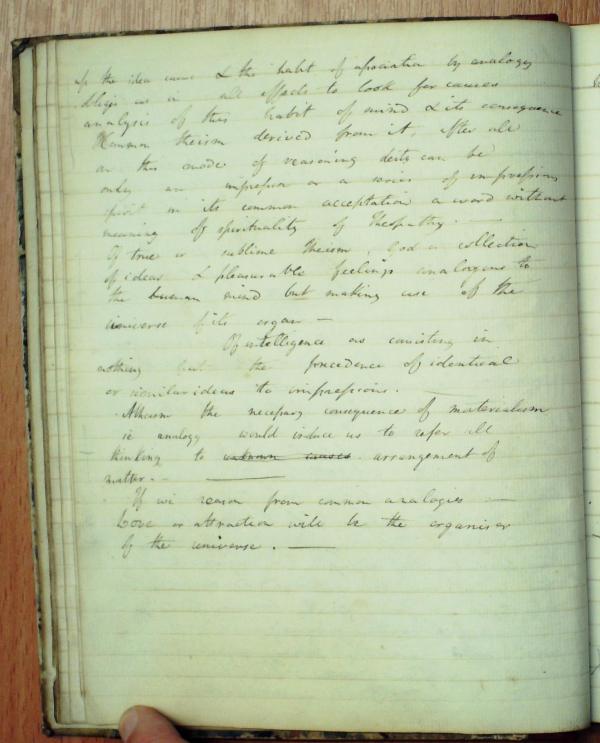 of the idea cause & the habit of association by analogy
oblige us in all effects to look for causes
analysis of this habit of mind & its consequence
Human theism derived from it, after all
on this mode of reasoning deity can be
only an impression or a series of impressions
spirit in its common acceptation a word without
meaning Of spirituality of Theopathy. —
Of true or sublime theism, God a collection
of ideas & pleasurable feelings analogous to
the human mind but making use of the
universe of its organ —
Of intelligence as consisting in
nothing but the precedence of identical
or similar ideas to impressions. —
Atheism the necessary consequence of materialism
ie analogy would induce us to refer all
thinking to unknown causes arrangement of
matter. — ———
If we reason from common analogies —
Love or attraction will be the organiser
of the universe. ——